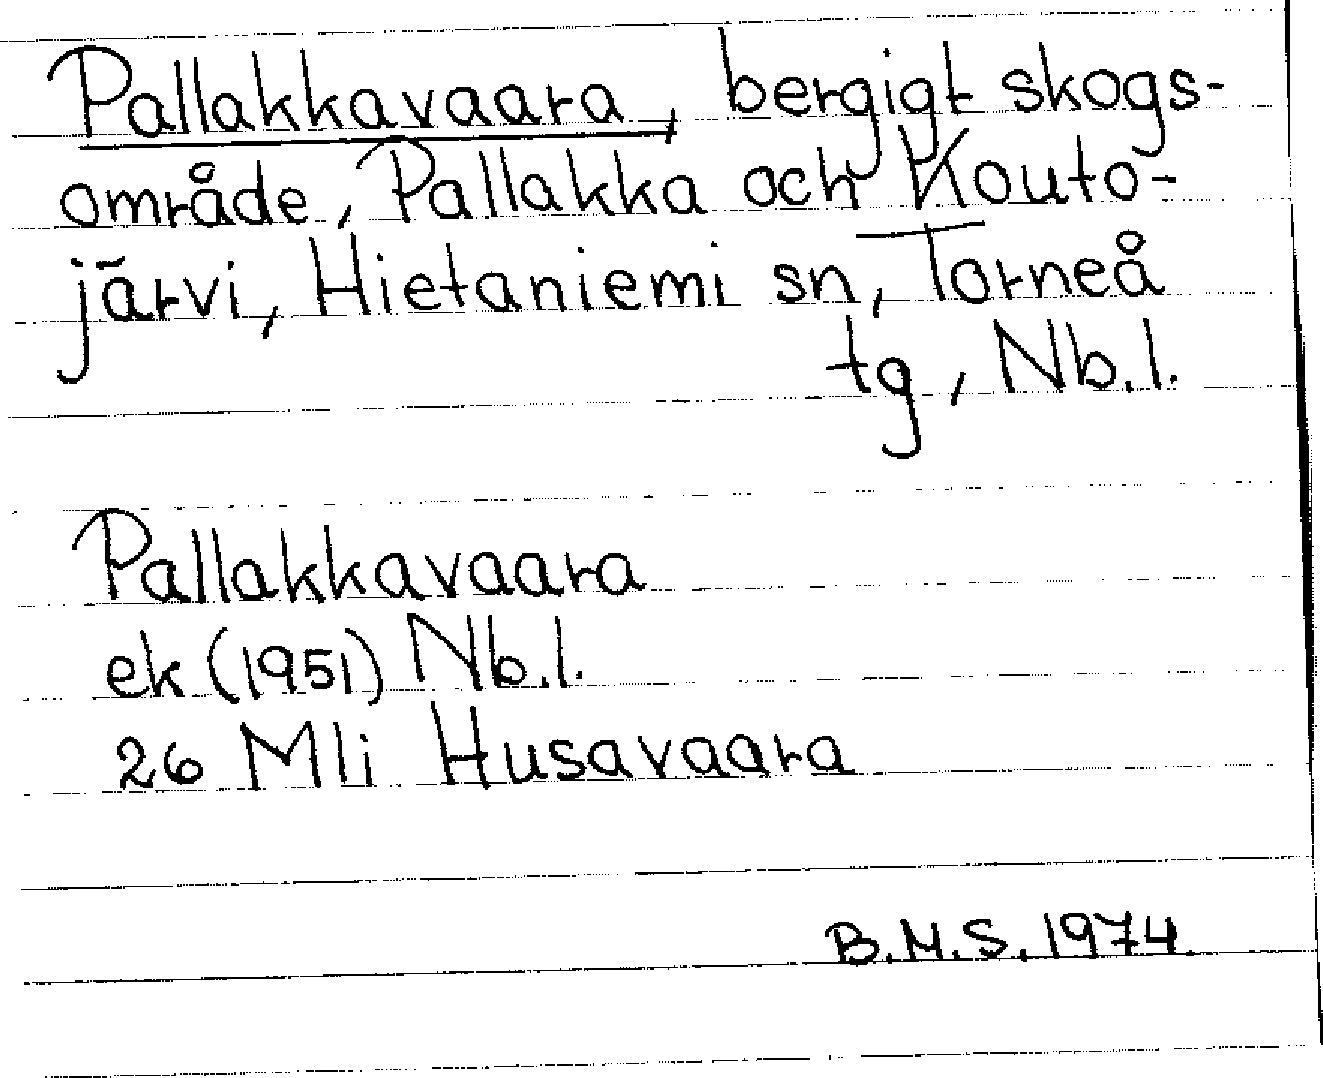 Pallakkavaara, bergigt skogs-
område, Pallakka och Kouto-
järvi, Hietaniemi sn, Torneå
tg, Nb.l.
Pallakkavaara
ek (1951) Nb.l.
26 Mli Husavaara
B.M.S. 1974